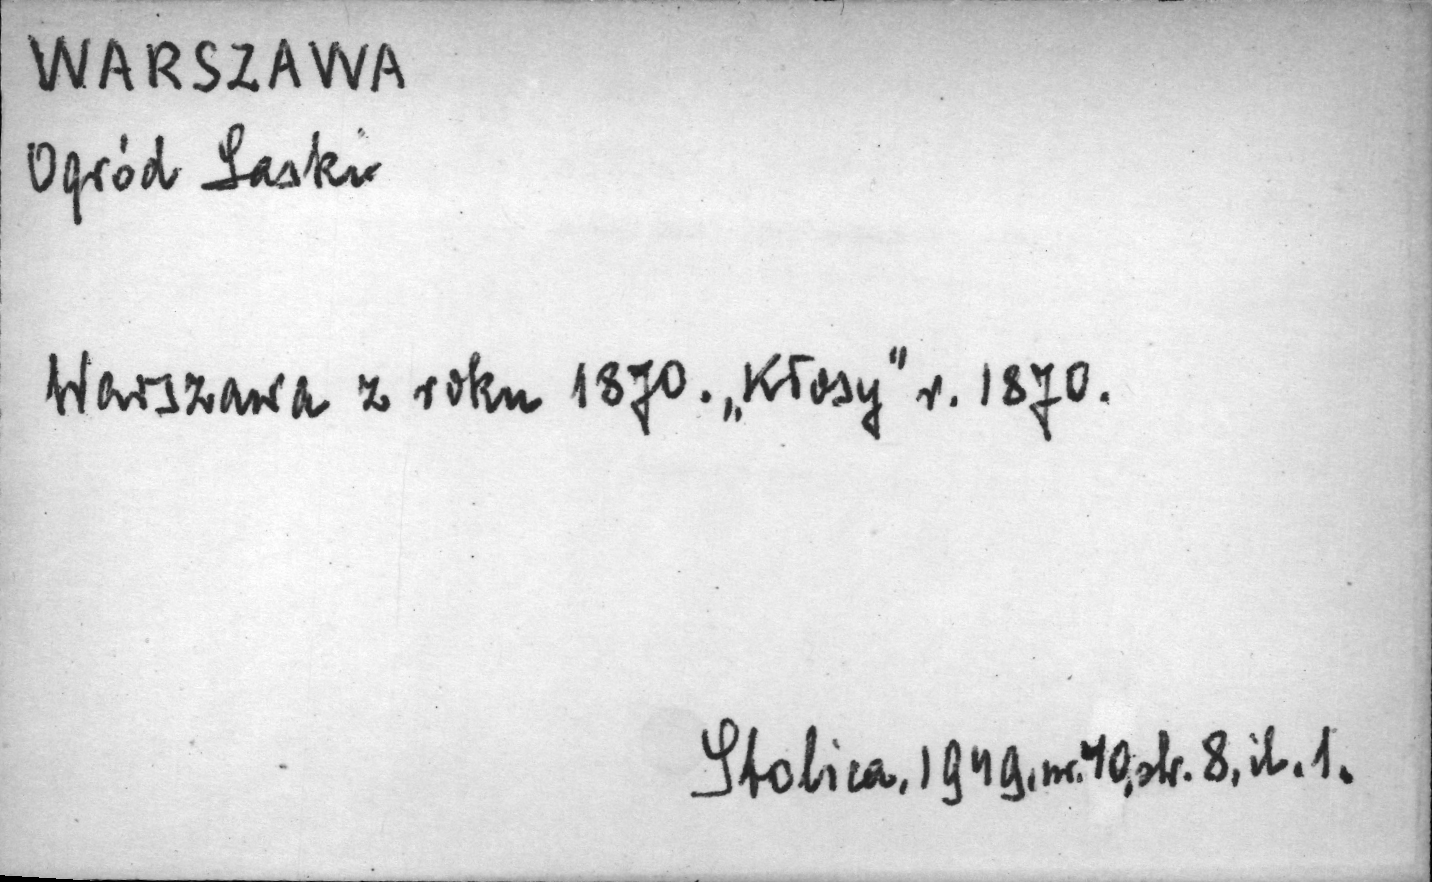 WARSZAWA
Ogród Saski
Warszawa z roku 1870. „Kłosy" r. 1870.
Stolica, 1949, nr. 40, str. 8, il. 1.